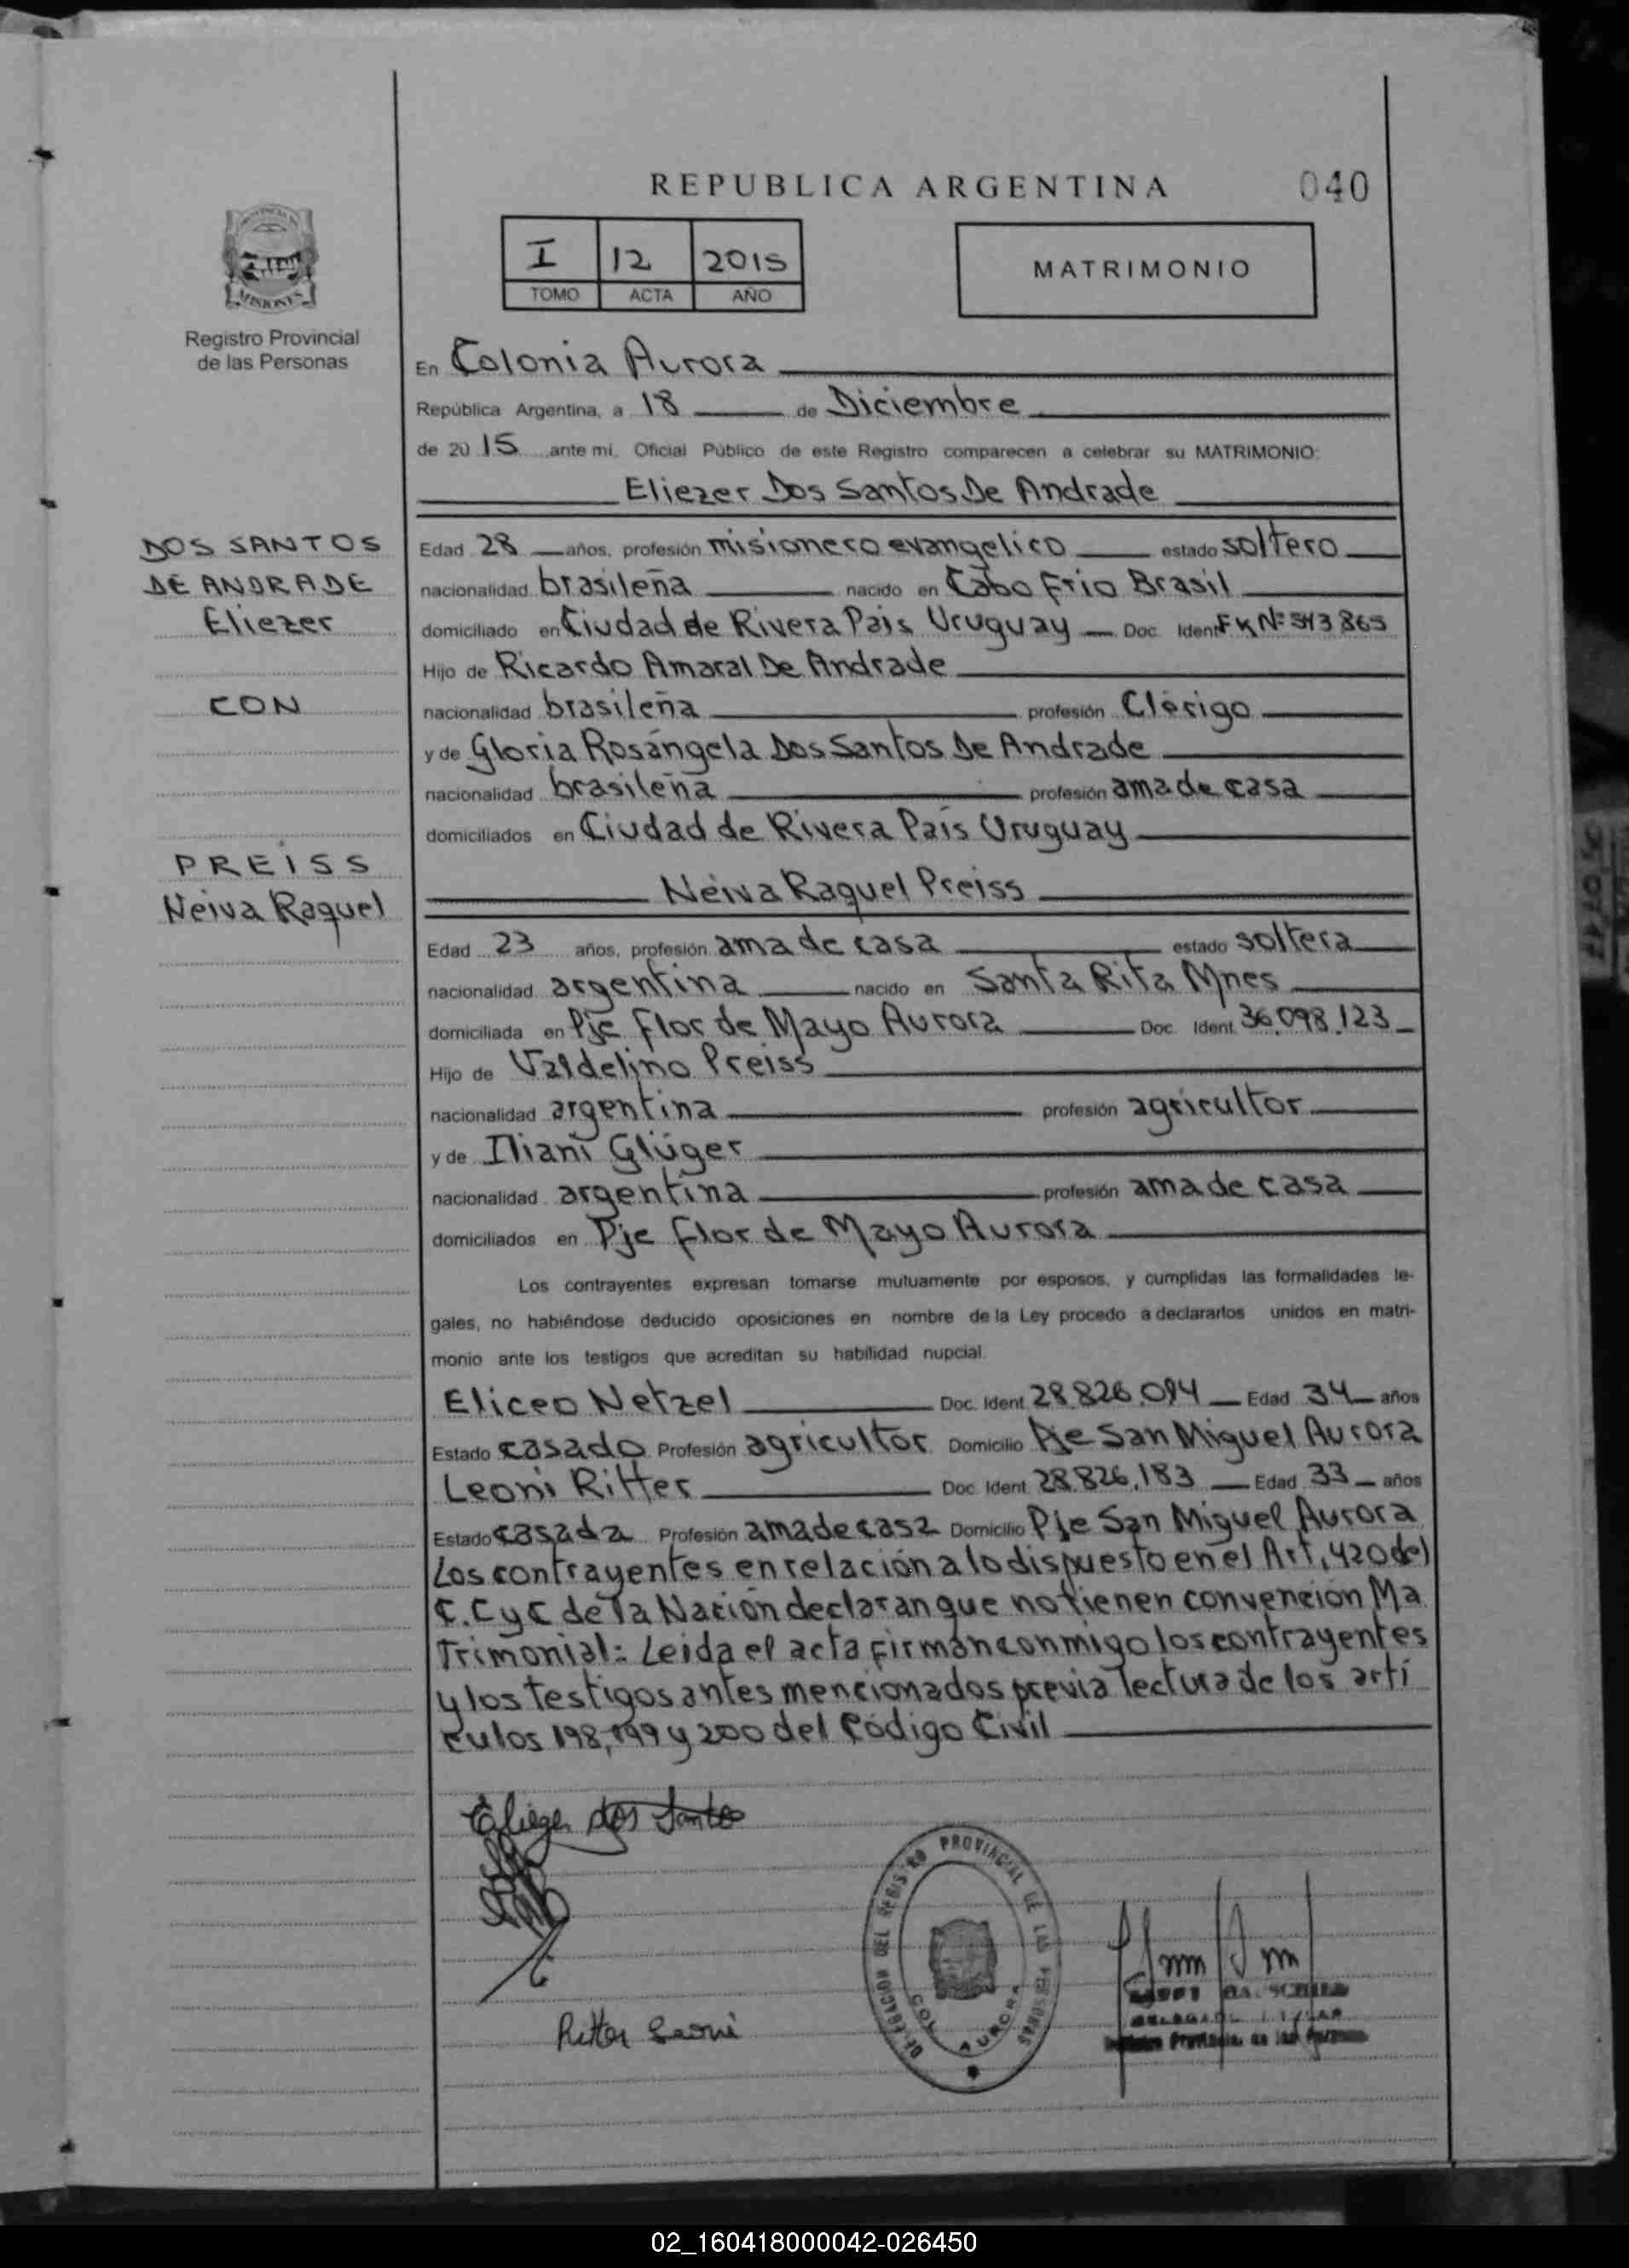 REPUBLICA ARGENTINA
040
MISIONES
Registro Provincial
de las Personas
I 12 2015
TOMO ACTA AÑO
MATRIMONIO
En Colonia Aurora
República Argentina, a 18 de Diciembre
de 2015 ante mi, Oficial Público de este Registro comparecen a celebrar su MATRIMONIO:
Eliezer Dos Santos De Andrade
DOS SANTOS
DE ANDRADE
Eliezer
CON
PREISS
Neiva Raquel
Edad 28 años, profesión misionero evangelico estado soltero
nacionalidad brasileña nacido en Cabo Frio Brasil
domiciliado en Ciudad de Rivera Pais Uruguay Doc. Ident FK Nº 543865
Hijo de Ricardo Amaral De Andrade
nacionalidad brasileña profesión Clérigo
y de Gloria Rosángela Dos Santos De Andrade
nacionalidad brasileña profesión ama de casa
domiciliados en Ciudad de Rivera Pais Uruguay
Neiva Raquel Preiss
Edad 23 años, profesión ama de casa estado soltera
nacionalidad argentina nacido en Santa Rita Mnes
domiciliada en Pje Flor de Mayo Aurora Doc. Ident. 36.098.123
Hijo de Valdelino Preiss
nacionalidad argentina profesión agricultor
y de Iliani Glüger
nacionalidad argentina profesión ama de casa
domiciliados en Pje Flor de Mayo Aurora
Los contrayentes expresan tomarse mutuamente por esposos, y cumplidas las formalidades le-
gales, no habiéndose deducido oposiciones en nombre de la Ley procedo a declararlos unidos en matri-
monio ante los testigos que acreditan su habilidad nupcial.
Eliceo Netzel Doc. Ident. 28.826.094 Edad 34 años
Estado casado Profesión agricultor Domicilio Pje San Miguel Aurora
Leoni Ritter Doc. Ident. 28.826.183 Edad 33 años
Estado casada Profesión ama de casa Domicilio Pje San Miguel Aurora
Los contrayentes en relación a lo dispuesto en el Art. 420 del
C.C y C de la Nación declaran que no tienen convención Ma
trimonial: Leida el acta firman conmigo los contrayentes
y los testigos antes mencionados previa lectura de los artí
culos 198, 199 y 200 del Código Civil
Eliezer dos Santos
Ritter Leoni
DELEGACION DEL REGISTRO PROVINCIAL DE LAS PERSONAS
COL. AURORA
02_160418000042-026450